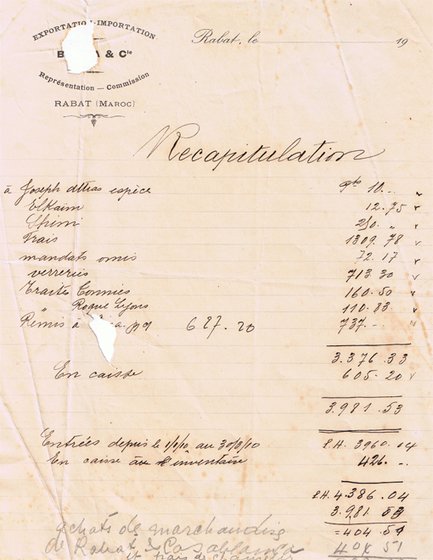 EXPORTATION - IMPORTATION
B & Cie
Représentation — Commission
RABAT (MAROC)
Rabat, le 19
Recapitulation
à Joseph Attias espèce 10.-
Elkaim 12.75
250. "
Frais 1309.78
mandats omis 72.17
verreries 713.30
Traites 160.50
" Lyons 110.83
Remes à 627.20 737.-
3.376.33
En caisse 605.20
3.981.53
Entrées depuis le 1/1/10 au 30/ /10 3960.04
En caisse l'inventaire 426.-
4.386.04
3.981.53
=404 51
achats de marchandise
de Rabat & Casablanca 404 51